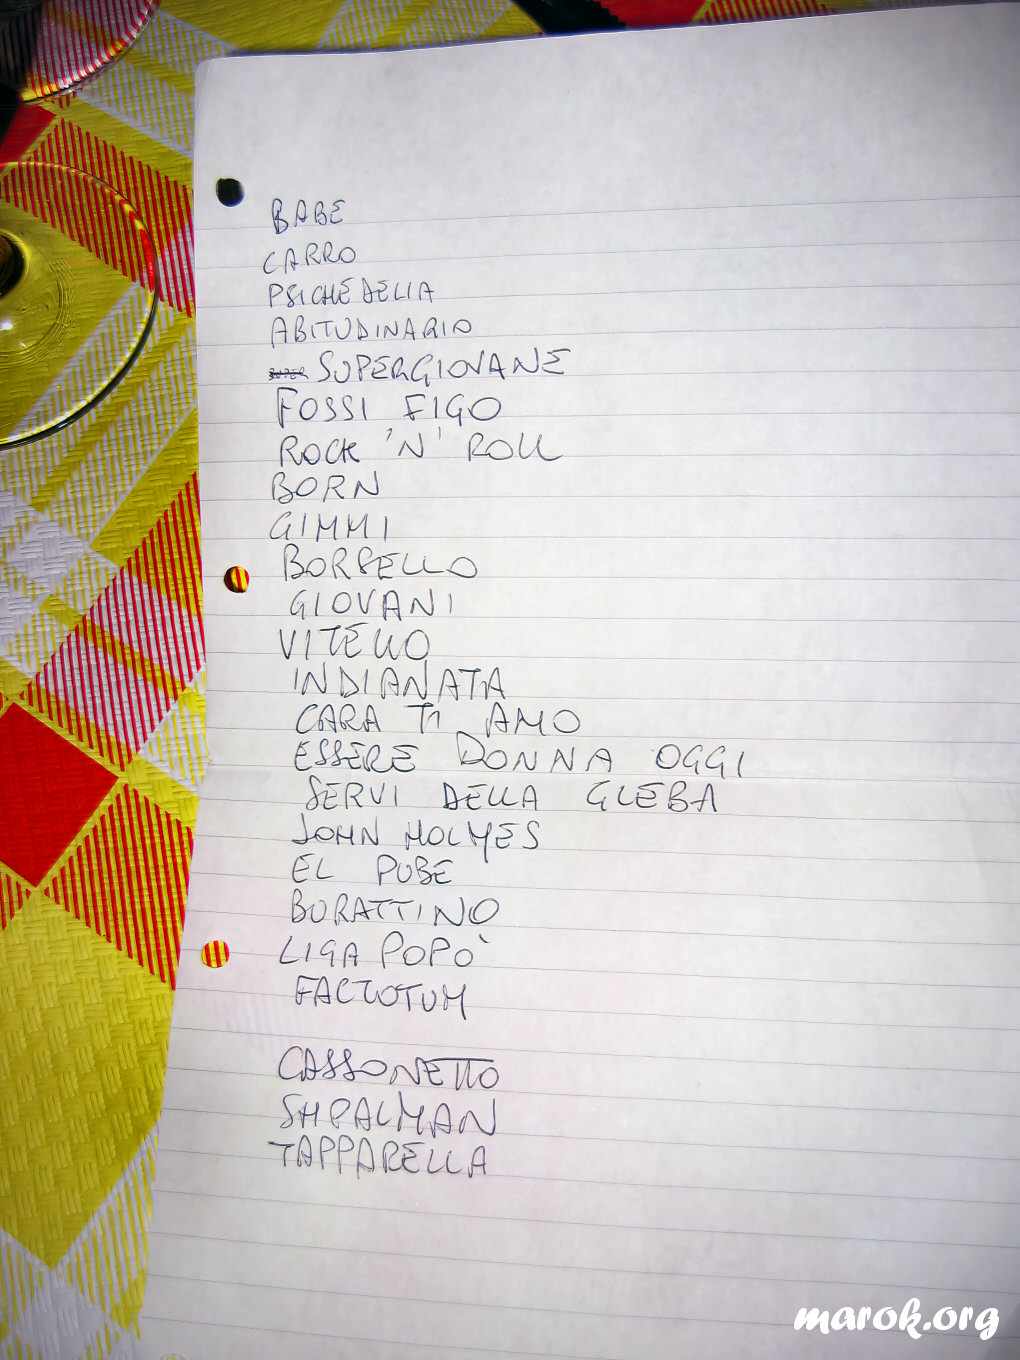 BABE
CARRO
PSICHEDELIA
ABITUDINARIO
SUPER SUPERGIOVANE
FOSSI FIGO
ROCK 'N' ROLL
BORN
GIMMI
BORSELLO
GIOVANI
VITELLO
INDIANATA
CARA TI AMO
ESSERE DONNA OGGI
SERVI DELLA GLEBA
JOHN HOLMES
EL PUBE
BURATTINO
LIGA POPÒ
FACTOTUM
CASSONETTO
SHPALMAN
TAPPARELLA
marok.org